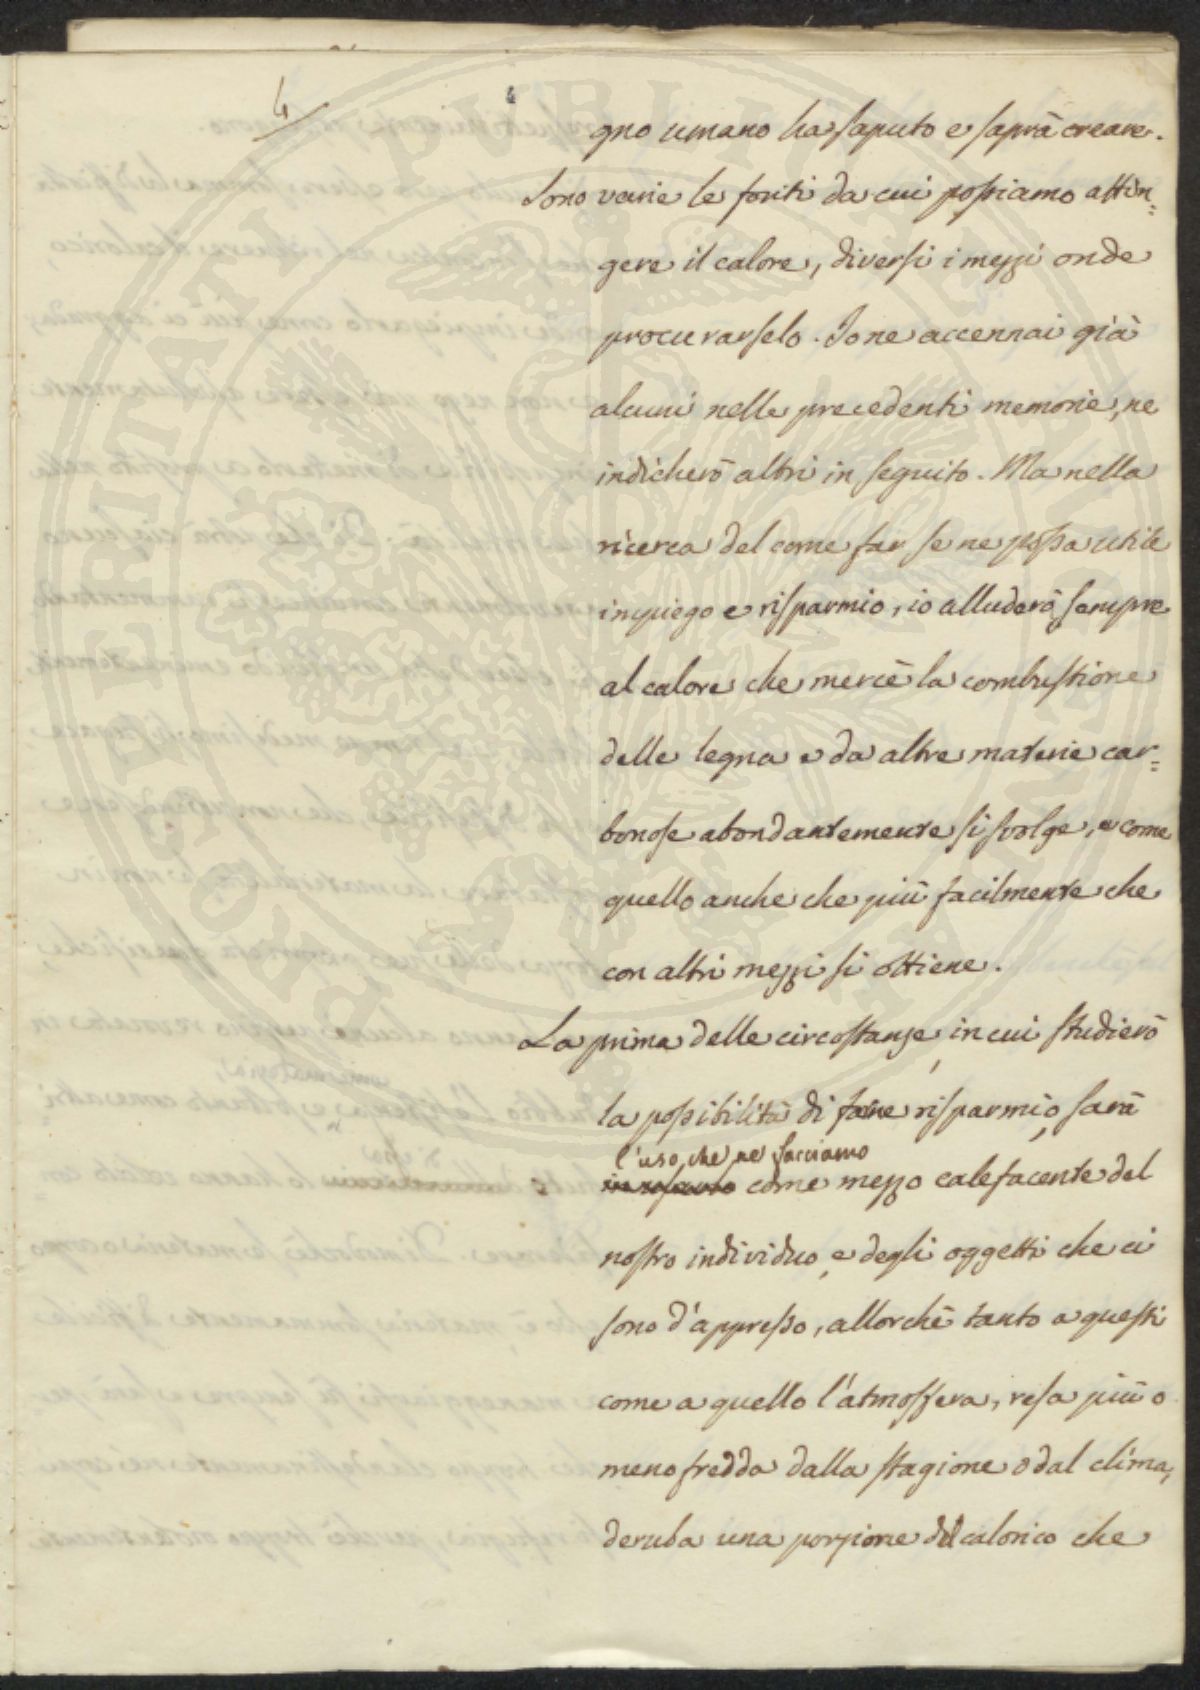 4
gno umano ha saputo e saprà creare.
Sono varie le fonti da cui possiamo attin=
gere il calore, diversi i mezzi onde
procurarselo. Io ne accennai già
alcuni nelle precedenti memorie, ne
indicherò altri in seguito. Ma nella
ricerca del come far se ne possa utile
impiego e risparmio, io alluderò sempre
al calore che mercè la combustione
delle legna e da altre materie car=
bonose abondantemente si svolge, e come
quello anche che più facilmente che
con altri mezzi si ottiene.
La prima delle circostanze, in cui studierò
la possibilità di farne risparmio, sarà
l'uso, che ne facciamo
come mezzo calefacente del
nostro individuo, e degli oggetti che ci
sono d'appresso, allorchè tanto a questi
come a quello l'atmosfera, resa più o
meno fredda dalla stagione o dal clima,
deruba una porzione del calorico che
PROSPERITATI PUBLICAE